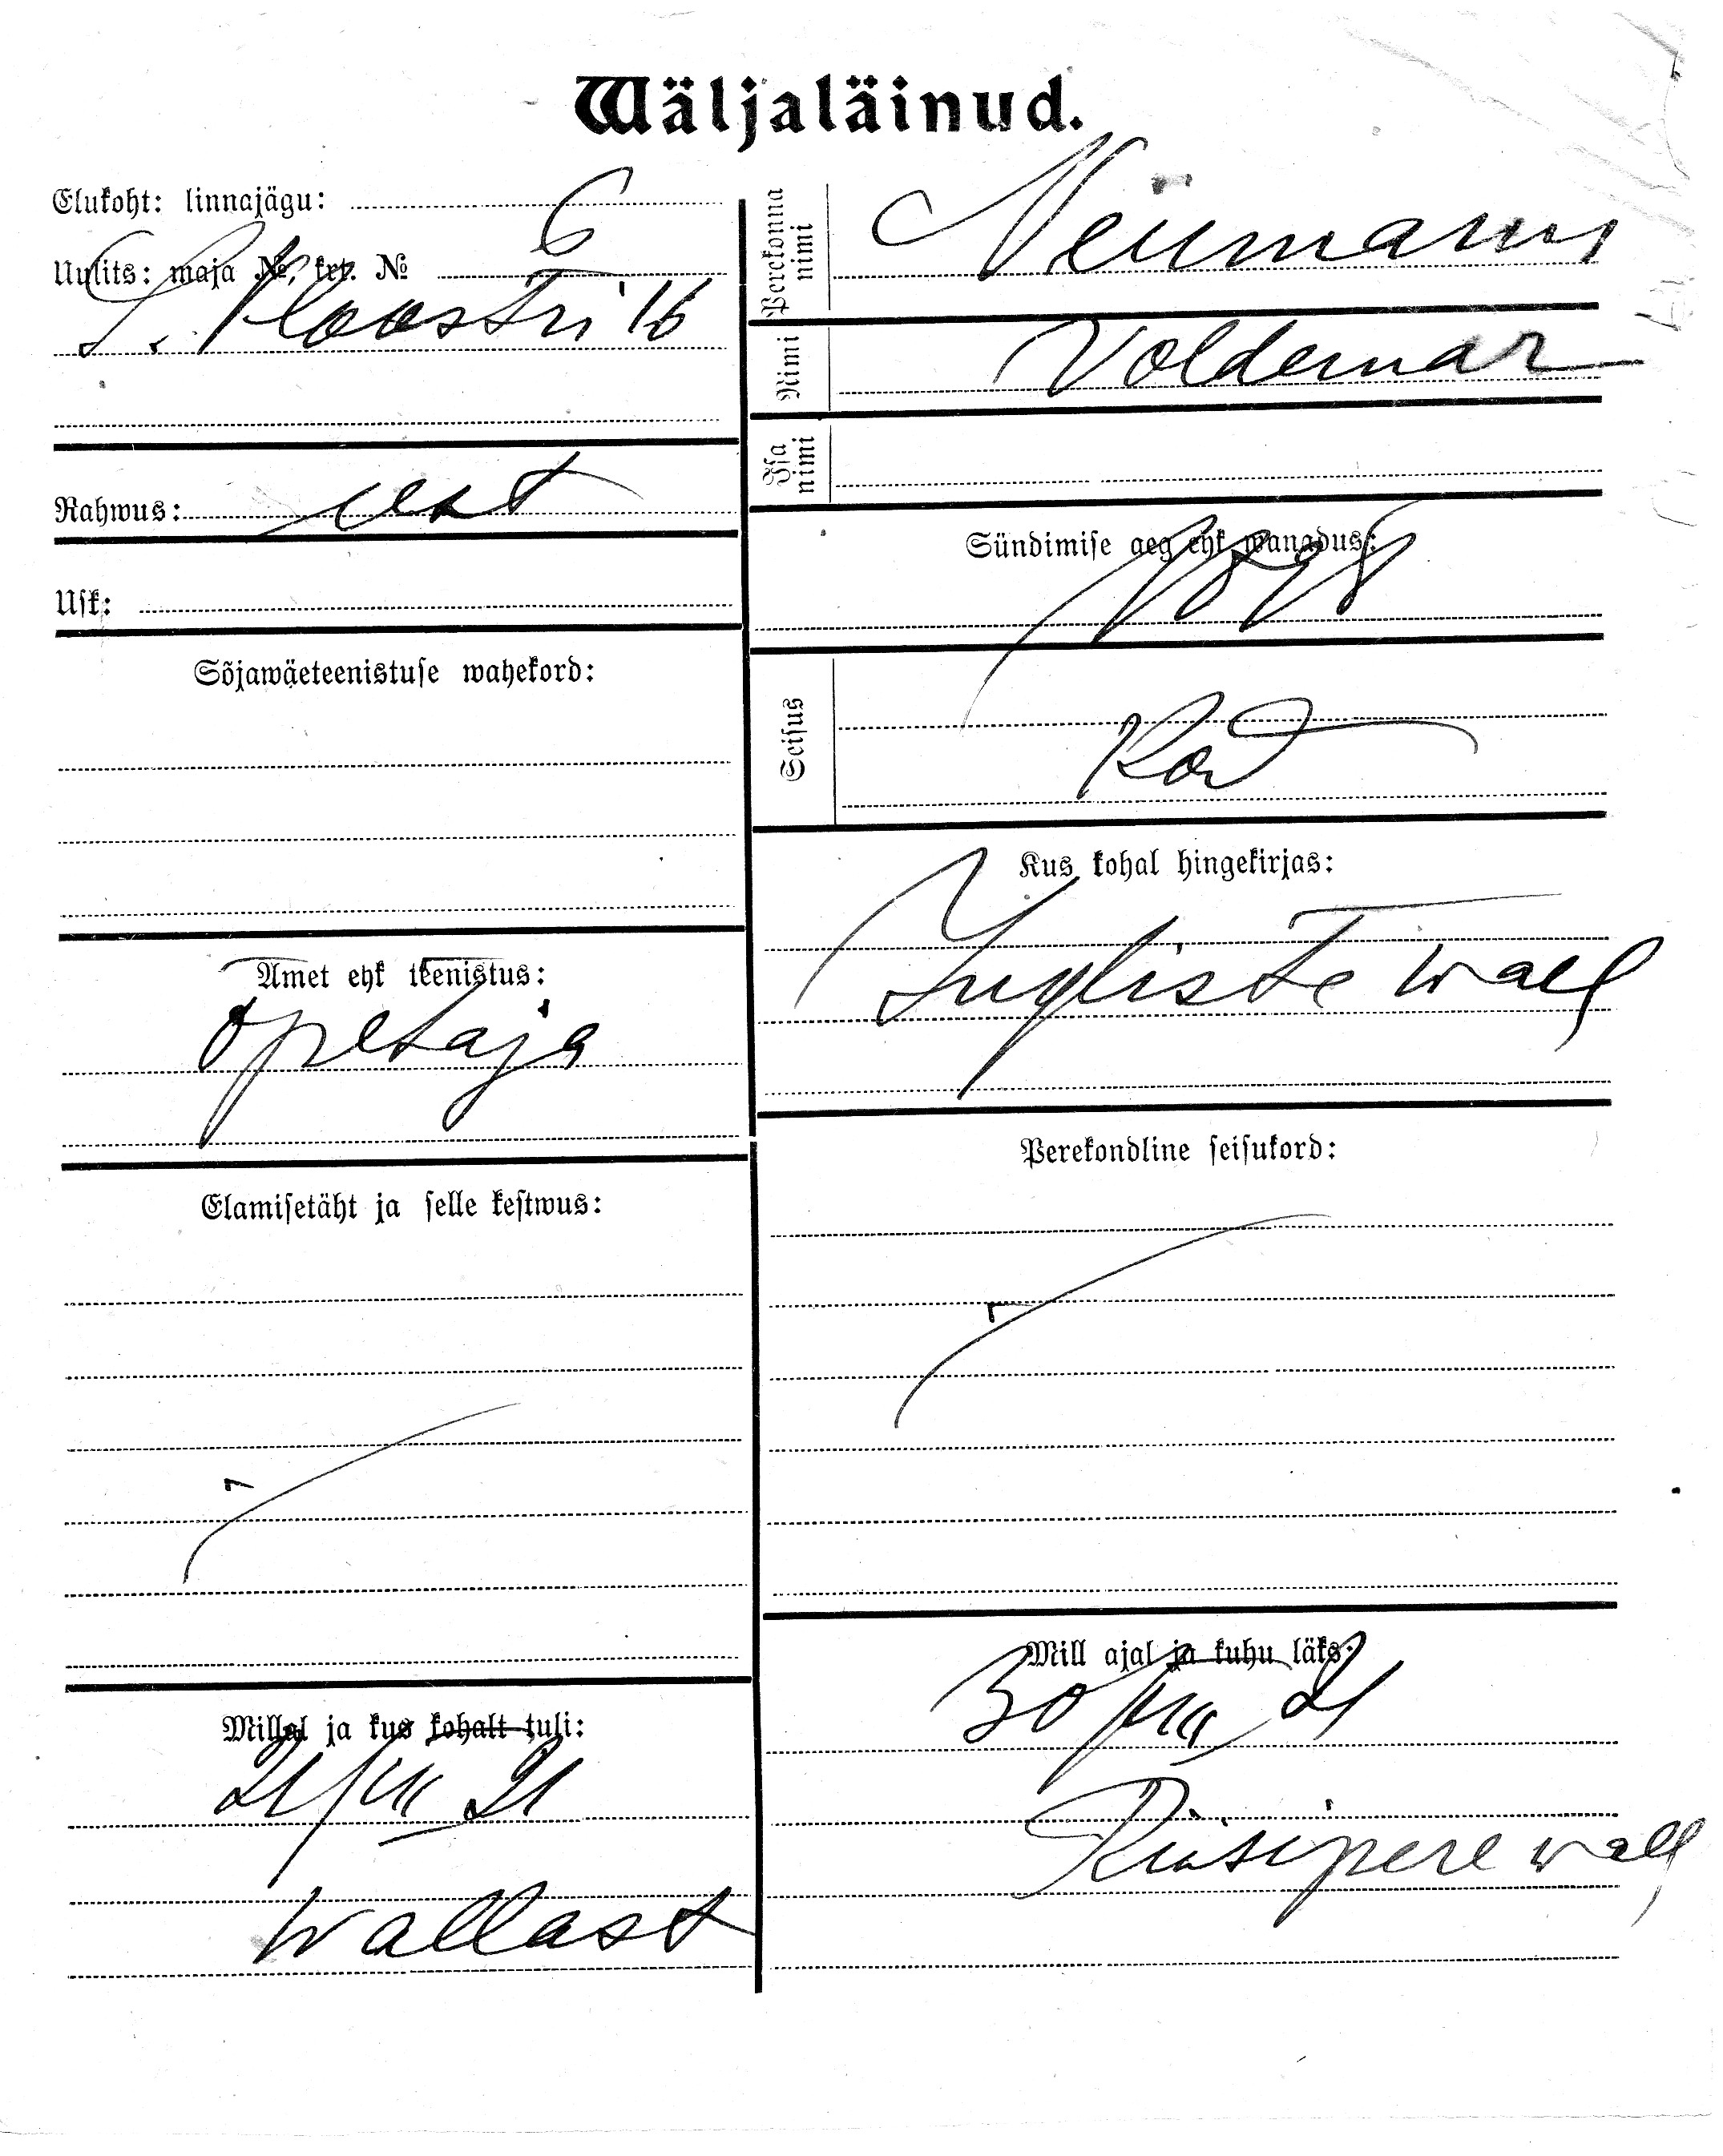 Wäljaläinud.
Elukoht: linnajägu: 6
Uulits: maja №, krt. №
S. Kloostri 16
Rahwus: est
Usk:
Sõjawäeteenistuse wahekord:
Amet ehk teenistus:
õpetaja
Elamisetäht ja selle kestwus:
Millal ja kus kohalt tuli:
21/VIII 21
Wallast
Perekonna nimi Neumann
Nimi Voldemar
Isa nimi
Sündimise aeg ehk wanadus:
1898
Seisus
Kod
Kus kohal hingekirjas:
Ingliste wall
Perekondline seisukord:
Mill ajal ja kuhu läks:
30/VIII 21
Riisipere wall